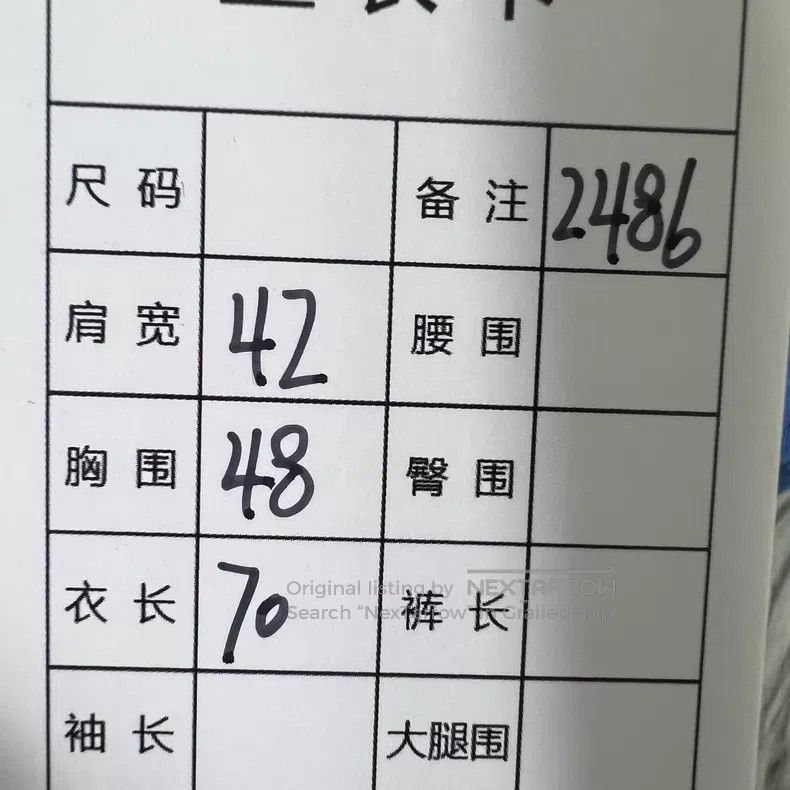 尺码 备注 2486
肩宽 42 腰围
胸围 48 臀围
衣长 70 裤长
Original listing by NEXTARROW
Search "Nextarrow" on Grailed app
袖长 大腿围